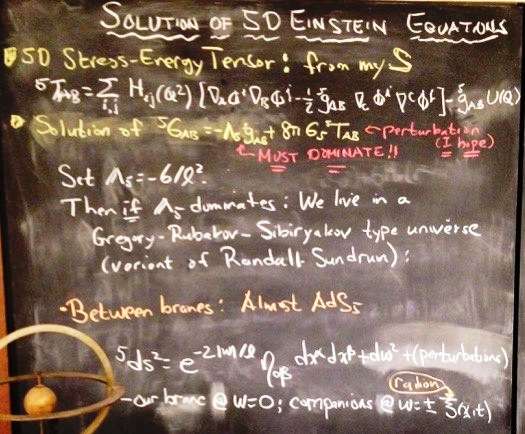 SOLUTION OF 5D EINSTEIN EQUATIONS
5D Stress-Energy Tensor: from my S
⁵T_AB = Σ_i,j H_ij(Q²) [∇_A Φ^i ∇_B Φ^j - ½ ⁵g_AB ∇_C Φ^i ∇^C Φ^j] - ⁵g_AB U(Q)
Solution of ⁵G_AB = -Λ₅ g_AB + 8π G₅ ⁵T_AB ← perturbation
(I hope)
↖ MUST DOMINATE!!
Set Λ₅ = -6/ℓ².
Then if Λ₅ dominates: We live in a
Gregory-Rubakov-Sibiryakov type universe
(variant of Randall Sundrum):
- Between branes: Almost AdS₅
⁵ds² = e^(-2|w|/ℓ) η_αβ dx^α dx^β + dw² + (perturbations)
radion
- our brane @ w=0; companions @ w=±ξ(x,t)